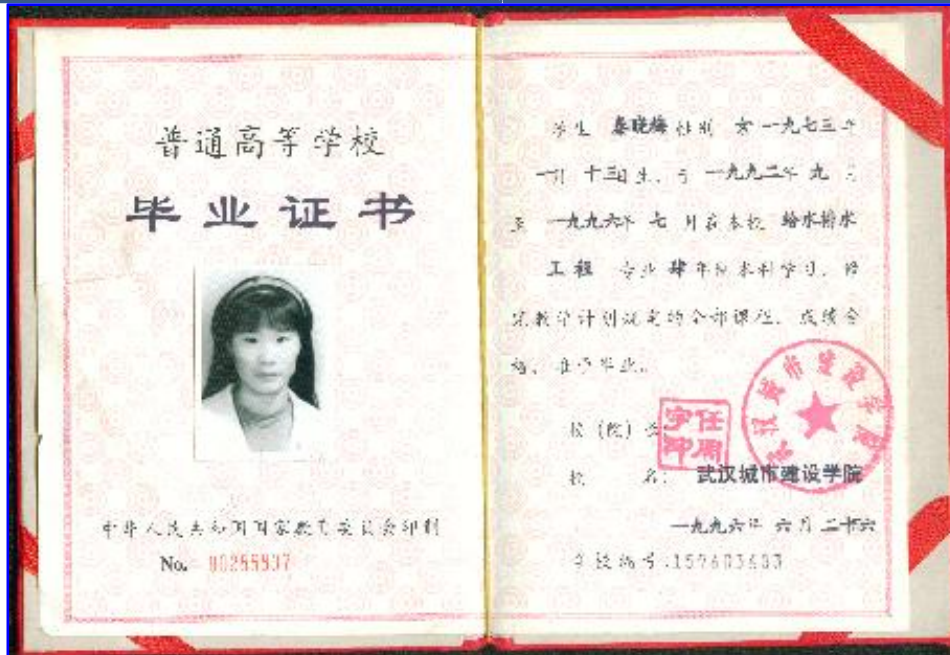 普通高等学校
毕业证书
中华人民共和国国家教育委员会印制
No. 00255937
学生 秦晓梅 性别 女 一九七三年
一月 十三日生，于 一九九二年 九 月
至 一九九六年 七 月在本校 给水排水
工程 专业 肆 年制本科学习，修
完教学计划规定的全部课程，成绩合
格，准予毕业。
校（院）长
校 名：武汉城市建设学院
一九九六年 六月 二十六
学校编号：
武汉城市建设学院